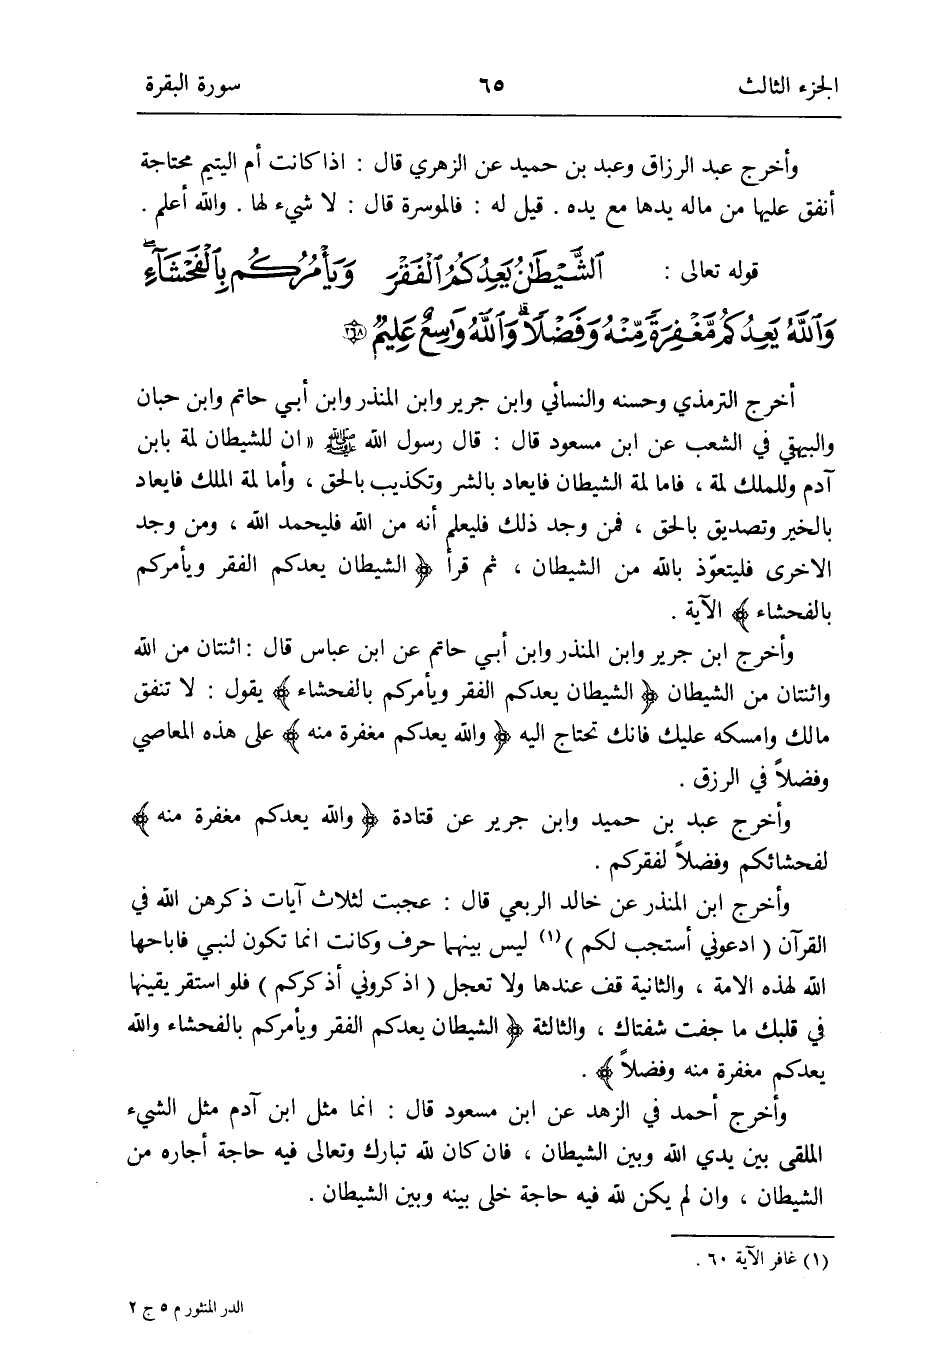 الجزء الثالث ٦٥ سورة البقرة
وأخرج عبد الرزاق وعبد بن حميد عن الزهري قال : اذا كانت أم اليتيم محتاجة
أنفق عليها من ماله يدها مع يده . قيل له : فالموسرة قال : لا شيء لها . والله أعلم .
قوله تعالى : الشَّيْطَٰنُ يَعِدُكُمُ الْفَقْرَ وَيَأْمُرُكُم بِالْفَحْشَآءِ ۖ
وَاللَّهُ يَعِدُكُم مَّغْفِرَةً مِّنْهُ وَفَضْلًا ۗ وَاللَّهُ وَاسِعٌ عَلِيمٌ ﴿٢٦٨﴾
أخرج الترمذي وحسنه والنسائي وابن جرير وابن المنذر وابن أبي حاتم وابن حبان
والبيهقي في الشعب عن ابن مسعود قال : قال رسول الله ﷺ « ان للشيطان لمة بابن
آدم وللملك لمة ، فاما لمة الشيطان فايعاد بالشر وتكذيب بالحق ، وأما لمة الملك فايعاد
بالخير وتصديق بالحق ، فمن وجد ذلك فليعلم أنه من الله فليحمد الله ، ومن وجد
الاخرى فليتعوّذ بالله من الشيطان ، ثم قرأ ﴿ الشيطان يعدكم الفقر ويأمركم
بالفحشاء ﴾ الآية .
وأخرج ابن جرير وابن المنذر وابن أبي حاتم عن ابن عباس قال : اثنتان من الله
واثنتان من الشيطان ﴿ الشيطان يعدكم الفقر ويأمركم بالفحشاء ﴾ يقول : لا تنفق
مالك وامسكه عليك فانك تحتاج اليه ﴿ والله يعدكم مغفرة منه ﴾ على هذه المعاصي
وفضلاً في الرزق .
وأخرج عبد بن حميد وابن جرير عن قتادة ﴿ والله يعدكم مغفرة منه ﴾
لفحشائكم وفضلاً لفقركم .
وأخرج ابن المنذر عن خالد الربعي قال : عجبت لثلاث آيات ذكرهن الله في
القرآن ( ادعوني أستجب لكم ) (١) ليس بينهما حرف وكانت انما تكون لنبي فاباحها
الله لهذه الامة ، والثانية قف عندها ولا تعجل ( اذكروني أذكركم ) فلو استقر يقينها
في قلبك ما جفت شفتاك ، والثالثة ﴿ الشيطان يعدكم الفقر ويأمركم بالفحشاء والله
يعدكم مغفرة منه وفضلاً ﴾ .
وأخرج أحمد في الزهد عن ابن مسعود قال : انما مثل ابن آدم مثل الشيء
الملقى بين يدي الله وبين الشيطان ، فان كان لله تبارك وتعالى فيه حاجة أجاره من
الشيطان ، وان لم يكن لله فيه حاجة خلى بينه وبين الشيطان .
(١) غافر الآية ٦٠ .
الدر المنثور م ٥ ج ٢